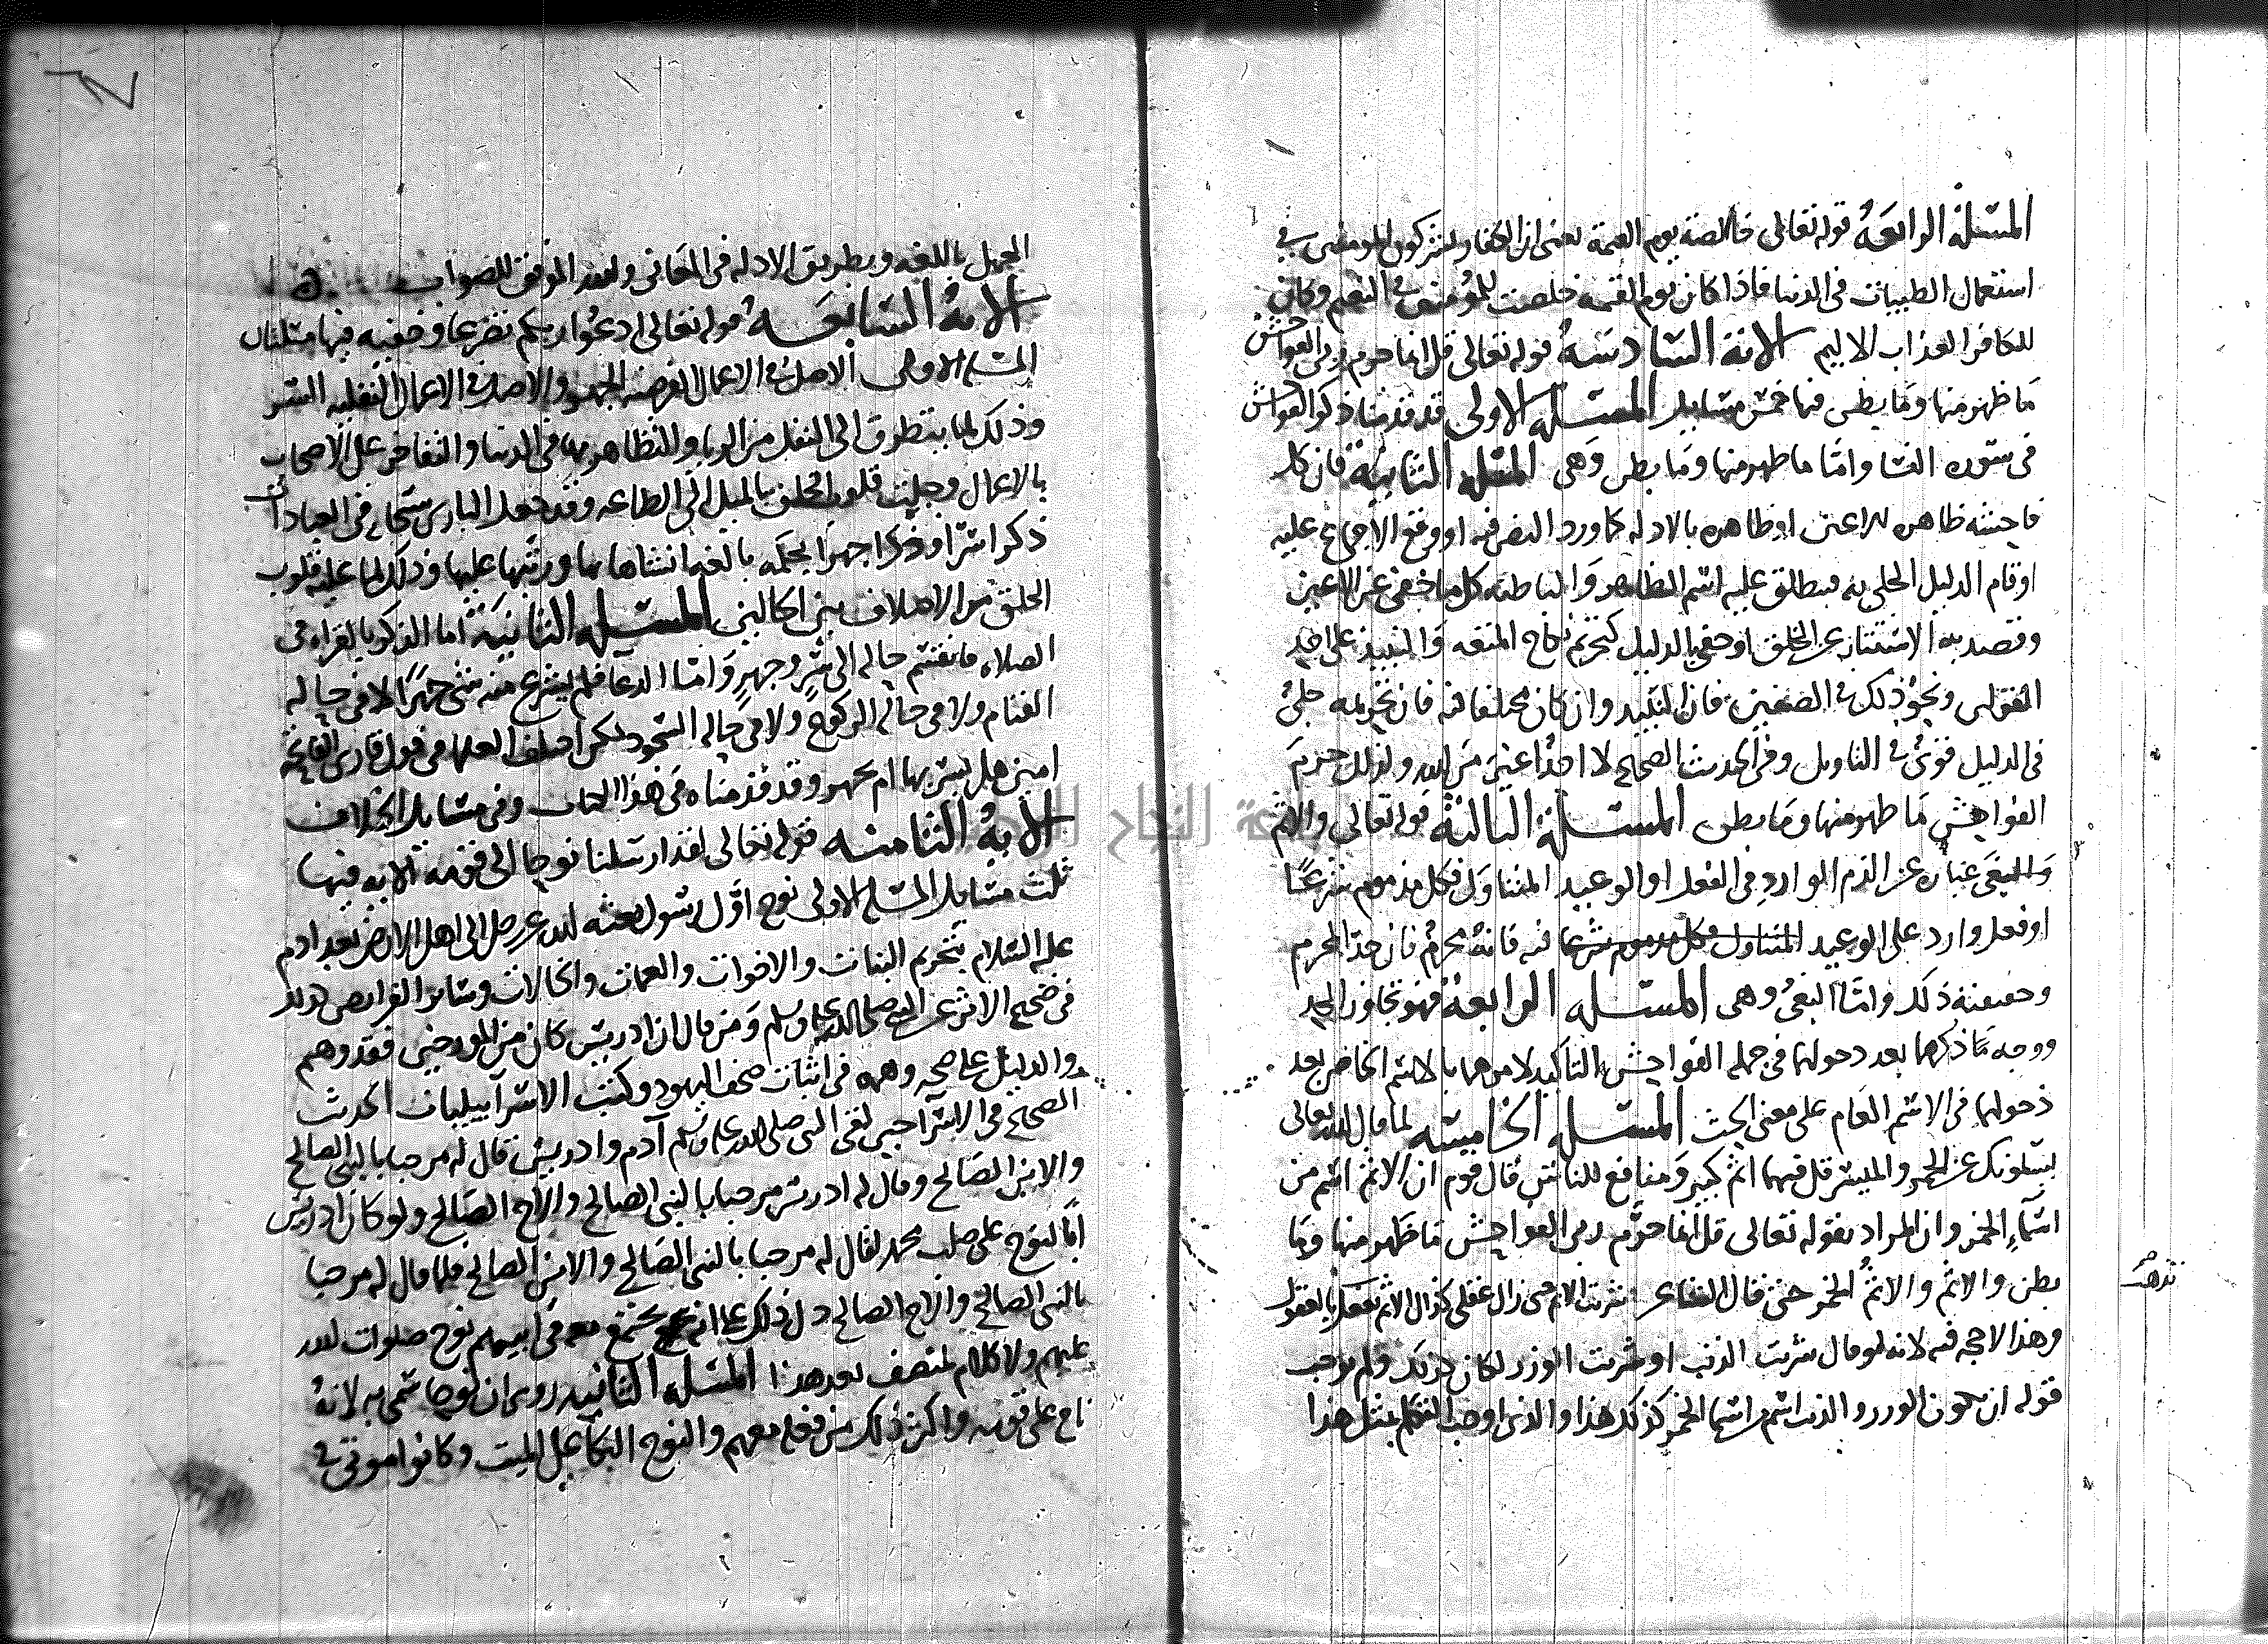 المسلة الرابعة قوله تعالى خالصة يوم القيمة يعنى ان الكفار يشركون المومنين في
استعمال الطيبات فى الدنيا فاذا كان يوم القيمه خلصت للمؤمنين في النعيم وكان
للكافر العذاب الاليم الاية السادسة قوله تعالى قل انما حرم ربى الفواحش
ما ظهر منها وما بطن فيها خمس مسايل المسله الاولى قد قدمنا ذكر الفواحش
فى سورة النسا واما ما ظهر منها وما بطن وهى المسله الثانية فان كل
فاحشة ظاهره للاعين او ظاهره بالادله كما ورد النص فيه او وقع الاجماع عليه
او قام الدليل الجلى به فينطلق عليه اسم الظاهر والباطنه كل ما خفى عن الاعين
وقصد به الاستتار عن الخلق او خفى بالدليل كتحريم نكاح المتعه والنبيذ على احد
القولين ونحو ذلك في الصنفين فان النبيذ وان كان مختلفا فيه فان تحريمه جلى
فى الدليل قوى في التاويل وفى الحديث الصحيح لا احد اغير من الله ولذلك حرم
الفواحش ما ظهر منها وما بطن المسلة الثالثة قوله تعالى والاثم
والبغى عباره عن الذم الوارد فى الفعل او الوعيد المتناول فكل مذموم شرعا
او فعل وارد على الوعيد المتناول وكل مذموم شرعا فيه فانه محرم فان حد المحرم
وحقيقته ذلك واما البغى وهى المسله الرابعة فهو تجاوز الحد
ووجه ما ذكرهما بعد دخولهما فى جمله الفواحش للتاكيد لامرهما بالاسم الخاص بعد
دخولهما فى الاسم العام على معنى الحث المسله الخامسه لما قال الله تعالى
يسلونك عن الخمر والميسر قل فيهما اثم كبير ومنافع للناس قال قوم ان الاثم اسم من
اسماء الخمر وان المراد بقوله تعالى قل انما حرم ربى الفواحش ما ظهر منها وما
بطن والاثم والاثم الخمر حتى قال الشاعر شربت الاثم حتى زال عقلى كذاك الاثم تفعل بالعقول
وهذا لا حجه فيه لانه لو قال شربت الذنب او شربت الوزر لكان كذلك ولم يوجب
قوله ان يكون الوزر والذنب اسم من اسما الخمر كذلك هذا والذى اوجب التكلم بمثل هذا
الجهل باللغه وبطريق الادله فى المعانى والله الموفق للصواب
الاية السابعة قوله تعالى ادعوا ربكم تضرعا وخفيه فيها مسلتان
المسله الاولى الاصل في الاعمال الفرضيه الجهر والاصل في الاعمال النفليه السر
وذلك لما يتطرق الى النفل من الريا والتظاهر بها فى الدنيا والتفاخر على الاصحاب
بالاعمال وجبلت قلوب الخلق بالميل الى اهل الطاعه وقد جعل البارى سبحانه فى العبادات
ذكرا سرا وذكرا جهرا بحكمه بالغه انشاها بها ورتبها عليها وذلك لما عليه قلوب
الخلق من الاختلاف بين الحالين المسيله الثانية اما الذكر بالقراه فى
الصلاه فانقسم حاله الى سر وجهر واما الدعا فلم يشرع منه شى جهرا لا فى حاله
القيام ولا فى حاله الركوع ولا فى حاله السجود لكن اختلف العلما فى قول قارى الفاتحة
امين هل يسر بها ام يجهر وقد قدمناه فى هذا الكتاب وفى مسايل الخلاف
الاية الثامنه قوله تعالى لقد ارسلنا نوحا الى قومه الايه فيها
ثلث مسايل المسله الاولى نوح اول رسول بعثه الله عز وجل الى اهل الارض بعد ادم
عليه السلام بتحريم البنات والاخوات والعمات والخالات وساير الفرايض كذلك
فى صحيح الاثر عن النبي صلى الله عليه وسلم ومن قال ان ادريس كان من المورخين فقد وهم
والدليل على صحه وهمه فى اثبات صحف اليهود وكتب الاسراييليات الحديث
الصحيح فى الاسرا حين لقى النبى صلى الله عليه وسلم آدم وادريس قال له مرحبا بالنبى الصالح
والابن الصالح وقال له ادريس مرحبا بالنبى الصالح والاخ الصالح ولو كان ادريس
ابا لنوح على صلب محمد لقال له مرحبا بالنبى الصالح والابن الصالح فلما قال له مرحبا
بالنبى الصالح والاخ الصالح دل ذلك على انه يجتمع معه فى ابيهم نوح صلوات الله
عليهم ولا كلام لمنصف بعد هذا المسله الثانيه روى ان نوحا سمى به لانه
ناح على قومه واكثر ذلك من فعله معهم والنوح البكا على الميت وكانوا موتى في